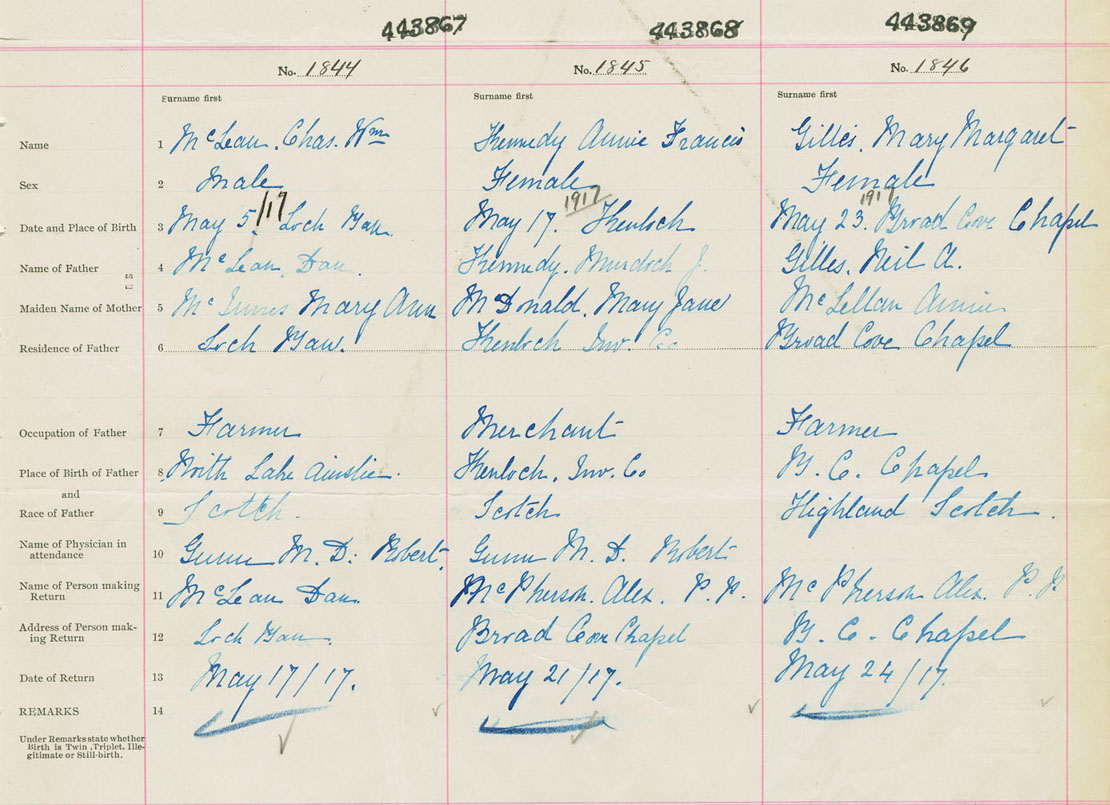 443867 443868 443869
No. 1844 No. 1845 No. 1846
Surname first Surname first Surname first
Name 1 McLean. Chas. Wm Kennedy Annie Francis Gillis. Mary Margaret
Sex 2 Male Female Female
1917 1917
Date and Place of Birth 3 May 5/17 Loch Ban. May 17. Kenloch May 23. Broad Cove Chapel
Name of Father 4 McLean, Dan. Kennedy. Murdoch J. Gilles. Neil A.
Maiden Name of Mother 5 McInnes Mary Ann McDonald. Mary Jane McLellan Annie
Residence of Father 6 Loch Ban. Kenloch Inv. Co Broad Cove Chapel
Occupation of Father 7 Farmer Merchant Farmer
Place of Birth of Father 8 North Lake Ainslie. Kenloch. Inv. Co B. C. Chapel
and
Race of Father 9 Scotch. Scotch Highland Scotch.
Name of Physician in
attendance 10 Gunn M. D. Robert. Gunn M. D. Robert
Name of Person making
Return 11 McLean Dan. McPherson. Alex. P. P. McPherson Alex. P. P.
Address of Person mak-
ing Return 12 Loch Ban. Broad Cove Chapel B. C. Chapel
Date of Return 13 May 17/17. May 21/17. May 24/17.
REMARKS 14
Under Remarks state whether
Birth is Twin, Triplet, Ille-
gitimate or Still-birth.